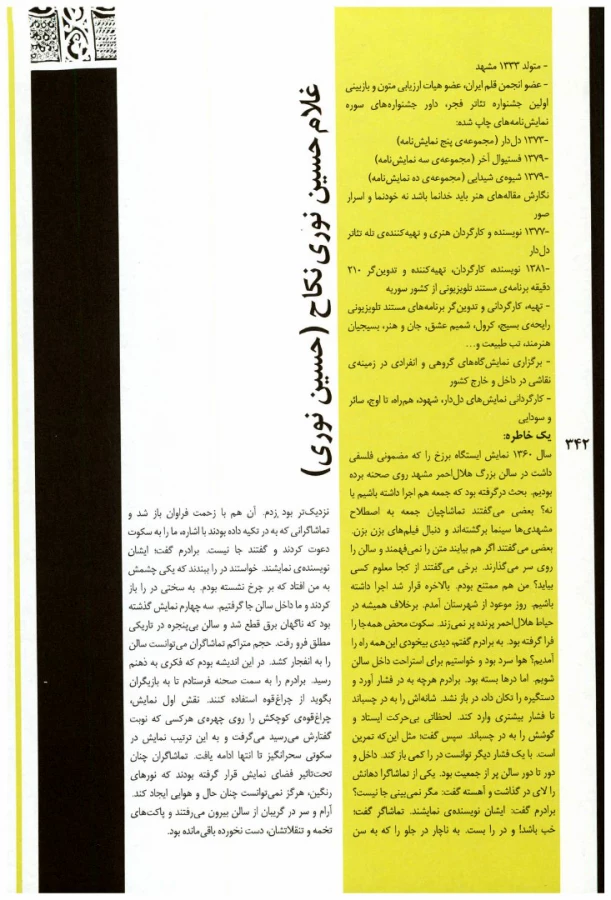 غلام حسین نوری نکاح (حسین نوری)
- متولد ۱۳۳۳ مشهد
- عضو انجمن قلم ایران، عضو هیات ارزیابی متون و بازبینی
اولین جشنواره تئاتر فجر، داور جشنواره‌های سوره
نمایش‌نامه‌های چاپ شده:
-۱۳۷۳ دل‌دار (مجموعه‌ی پنج نمایش‌نامه)
-۱۳۷۹ فستیوال آخر (مجموعه‌ی سه نمایش‌نامه)
-۱۳۷۹ شیوه‌ی شیدایی (مجموعه‌ی ده نمایش‌نامه)
نگارش مقاله‌های هنر باید خدانما باشد نه خودنما و اسرار
صور
-۱۳۷۷ نویسنده و کارگردان هنری و تهیه‌کننده‌ی تله تئاتر
دل‌دار
-۱۳۸۱ نویسنده، کارگردان، تهیه‌کننده و تدوین‌گر ۲۱۰
دقیقه برنامه‌ی مستند تلویزیونی از کشور سوریه
- تهیه، کارگردانی و تدوین‌گر برنامه‌های مستند تلویزیونی
رایحه‌ی بسیج، کرول، شمیم عشق، جان و هنر، بسیجیان
هنرمند، تب طبیعت و...
- برگزاری نمایش‌گاه‌های گروهی و انفرادی در زمینه‌ی
نقاشی در داخل و خارج کشور
- کارگردانی نمایش‌های دل‌دار، شهود، همراه، تا اوج، سائر
و سودایی
یک خاطره:
سال ۱۳۶۰ نمایش ایستگاه برزخ را که مضمونی فلسفی
داشت در سالن بزرگ هلال‌احمر مشهد روی صحنه برده
بودیم. بحث درگرفته بود که جمعه هم اجرا داشته باشیم یا
نه؟ بعضی می‌گفتند تماشاچیان جمعه به اصطلاح
مشهدی‌ها سینما برگشته‌اند و دنبال فیلم‌های بزن بزن.
بعضی می‌گفتند اگر هم بیایند متن را نمی‌فهمند و سالن را
روی سر می‌گذارند. برخی می‌گفتند از کجا معلوم کسی
بیاید؟ من هم ممتنع بودم. بالاخره قرار شد اجرا داشته
باشیم. روز موعود از شهرستان آمدم. برخلاف همیشه در
حیاط هلال‌احمر پرنده پر نمی‌زند. سکوت محض همه‌جا را
فرا گرفته بود. به برادرم گفتم، دیدی بیخودی این‌همه راه را
آمدیم؟ هوا سرد بود و خواستیم برای استراحت داخل سالن
شویم. اما درها بسته بود. برادرم هرچه به در فشار آورد و
دستگیره را تکان داد، در باز نشد. شانه‌اش را به در چسباند
تا فشار بیشتری وارد کند. لحظاتی بی‌حرکت ایستاد و
گوشش را به در چسباند. سپس گفت: مثل این‌که تمرین
است. با یک فشار دیگر توانست در را کمی باز کند. داخل و
دور تا دور سالن پر از جمعیت بود. یکی از تماشاگرا دهانش
را لای در گذاشت و آهسته گفت: مگر نمی‌بینی جا نیست؟
برادرم گفت: ایشان نویسنده‌ی نمایشند. تماشاگر گفت:
خب باشد! و در را بست. به ناچار در جلو را که به سن
نزدیک‌تر بود زدم. آن هم با زحمت فراوان باز شد و
تماشاگرانی که به در تکیه داده بودند با اشاره، ما را به سکوت
دعوت کردند و گفتند جا نیست. برادرم گفت: ایشان
نویسنده‌ی نمایشند. خواستند در را ببندند که یکی چشمش
به من افتاد که بر چرخ نشسته بودم. به سختی در را باز
کردند و ما داخل سالن جا گرفتیم. سه چهارم نمایش گذشته
بود که ناگهان برق قطع شد و سالن بی‌پنجره در تاریکی
مطلق فرو رفت. حجم متراکم تماشاگران می‌توانست سالن
را به انفجار کشد. در این اندیشه بودم که فکری به ذهنم
رسید. برادرم را به سمت صحنه فرستادم تا به بازیگران
بگوید از چراغ‌قوه استفاده کنند. نقش اول نمایش،
چراغ‌قوه‌ی کوچکش را روی چهره‌ی هرکسی که نوبت
گفتارش می‌رسید می‌گرفت و به این ترتیب نمایش در
سکوتی سحرانگیز تا انتها ادامه یافت. تماشاگران چنان
تحت‌تاثیر فضای نمایش قرار گرفته بودند که نورهای
رنگین، هرگز نمی‌توانست چنان حال و هوایی ایجاد کند.
آرام و سر در گریبان از سالن بیرون می‌رفتند و پاکت‌های
تخمه و تنقلاتشان، دست نخورده باقی‌مانده بود.
۳۴۲